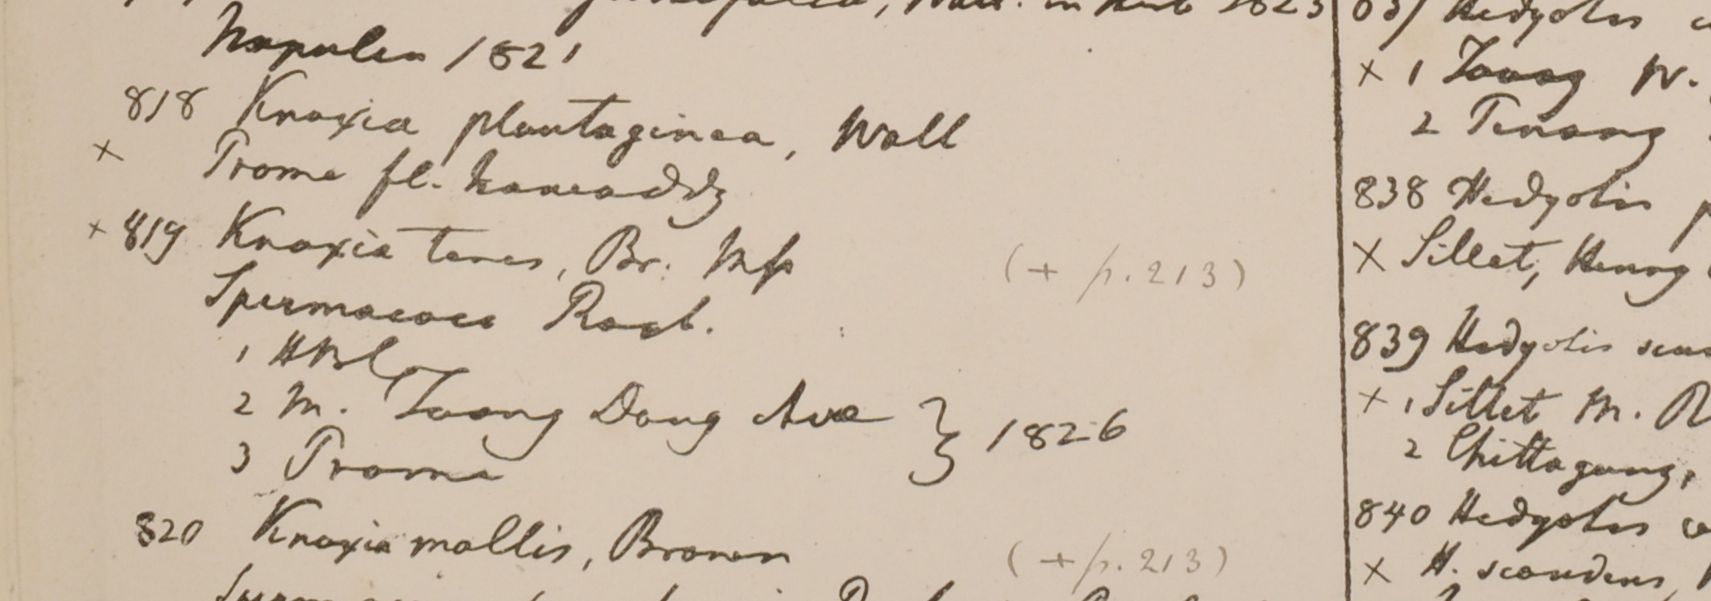 Wall. in Herb 1823
Napulea 1821
818 Knoxia plantaginea, Wall
x Prome fl. kaneaddy
x 819 Knoxia teres, Br. Mss
(+ p. 213)
Spermacoce Roxb.
1 HBC
2 M. Toong Dong Ava } 1826
3 Prome
820 Knoxia mollis, Brown
(+ p. 213)
Hedyotis
x 1 Toong W.
2 Penang
838 Hedyotis p
x Sillet, Henry
839 Hedyotis scan
x 1 Sillet M. R
2 Chittagong,
840 Hedyotis
x H. scandens,